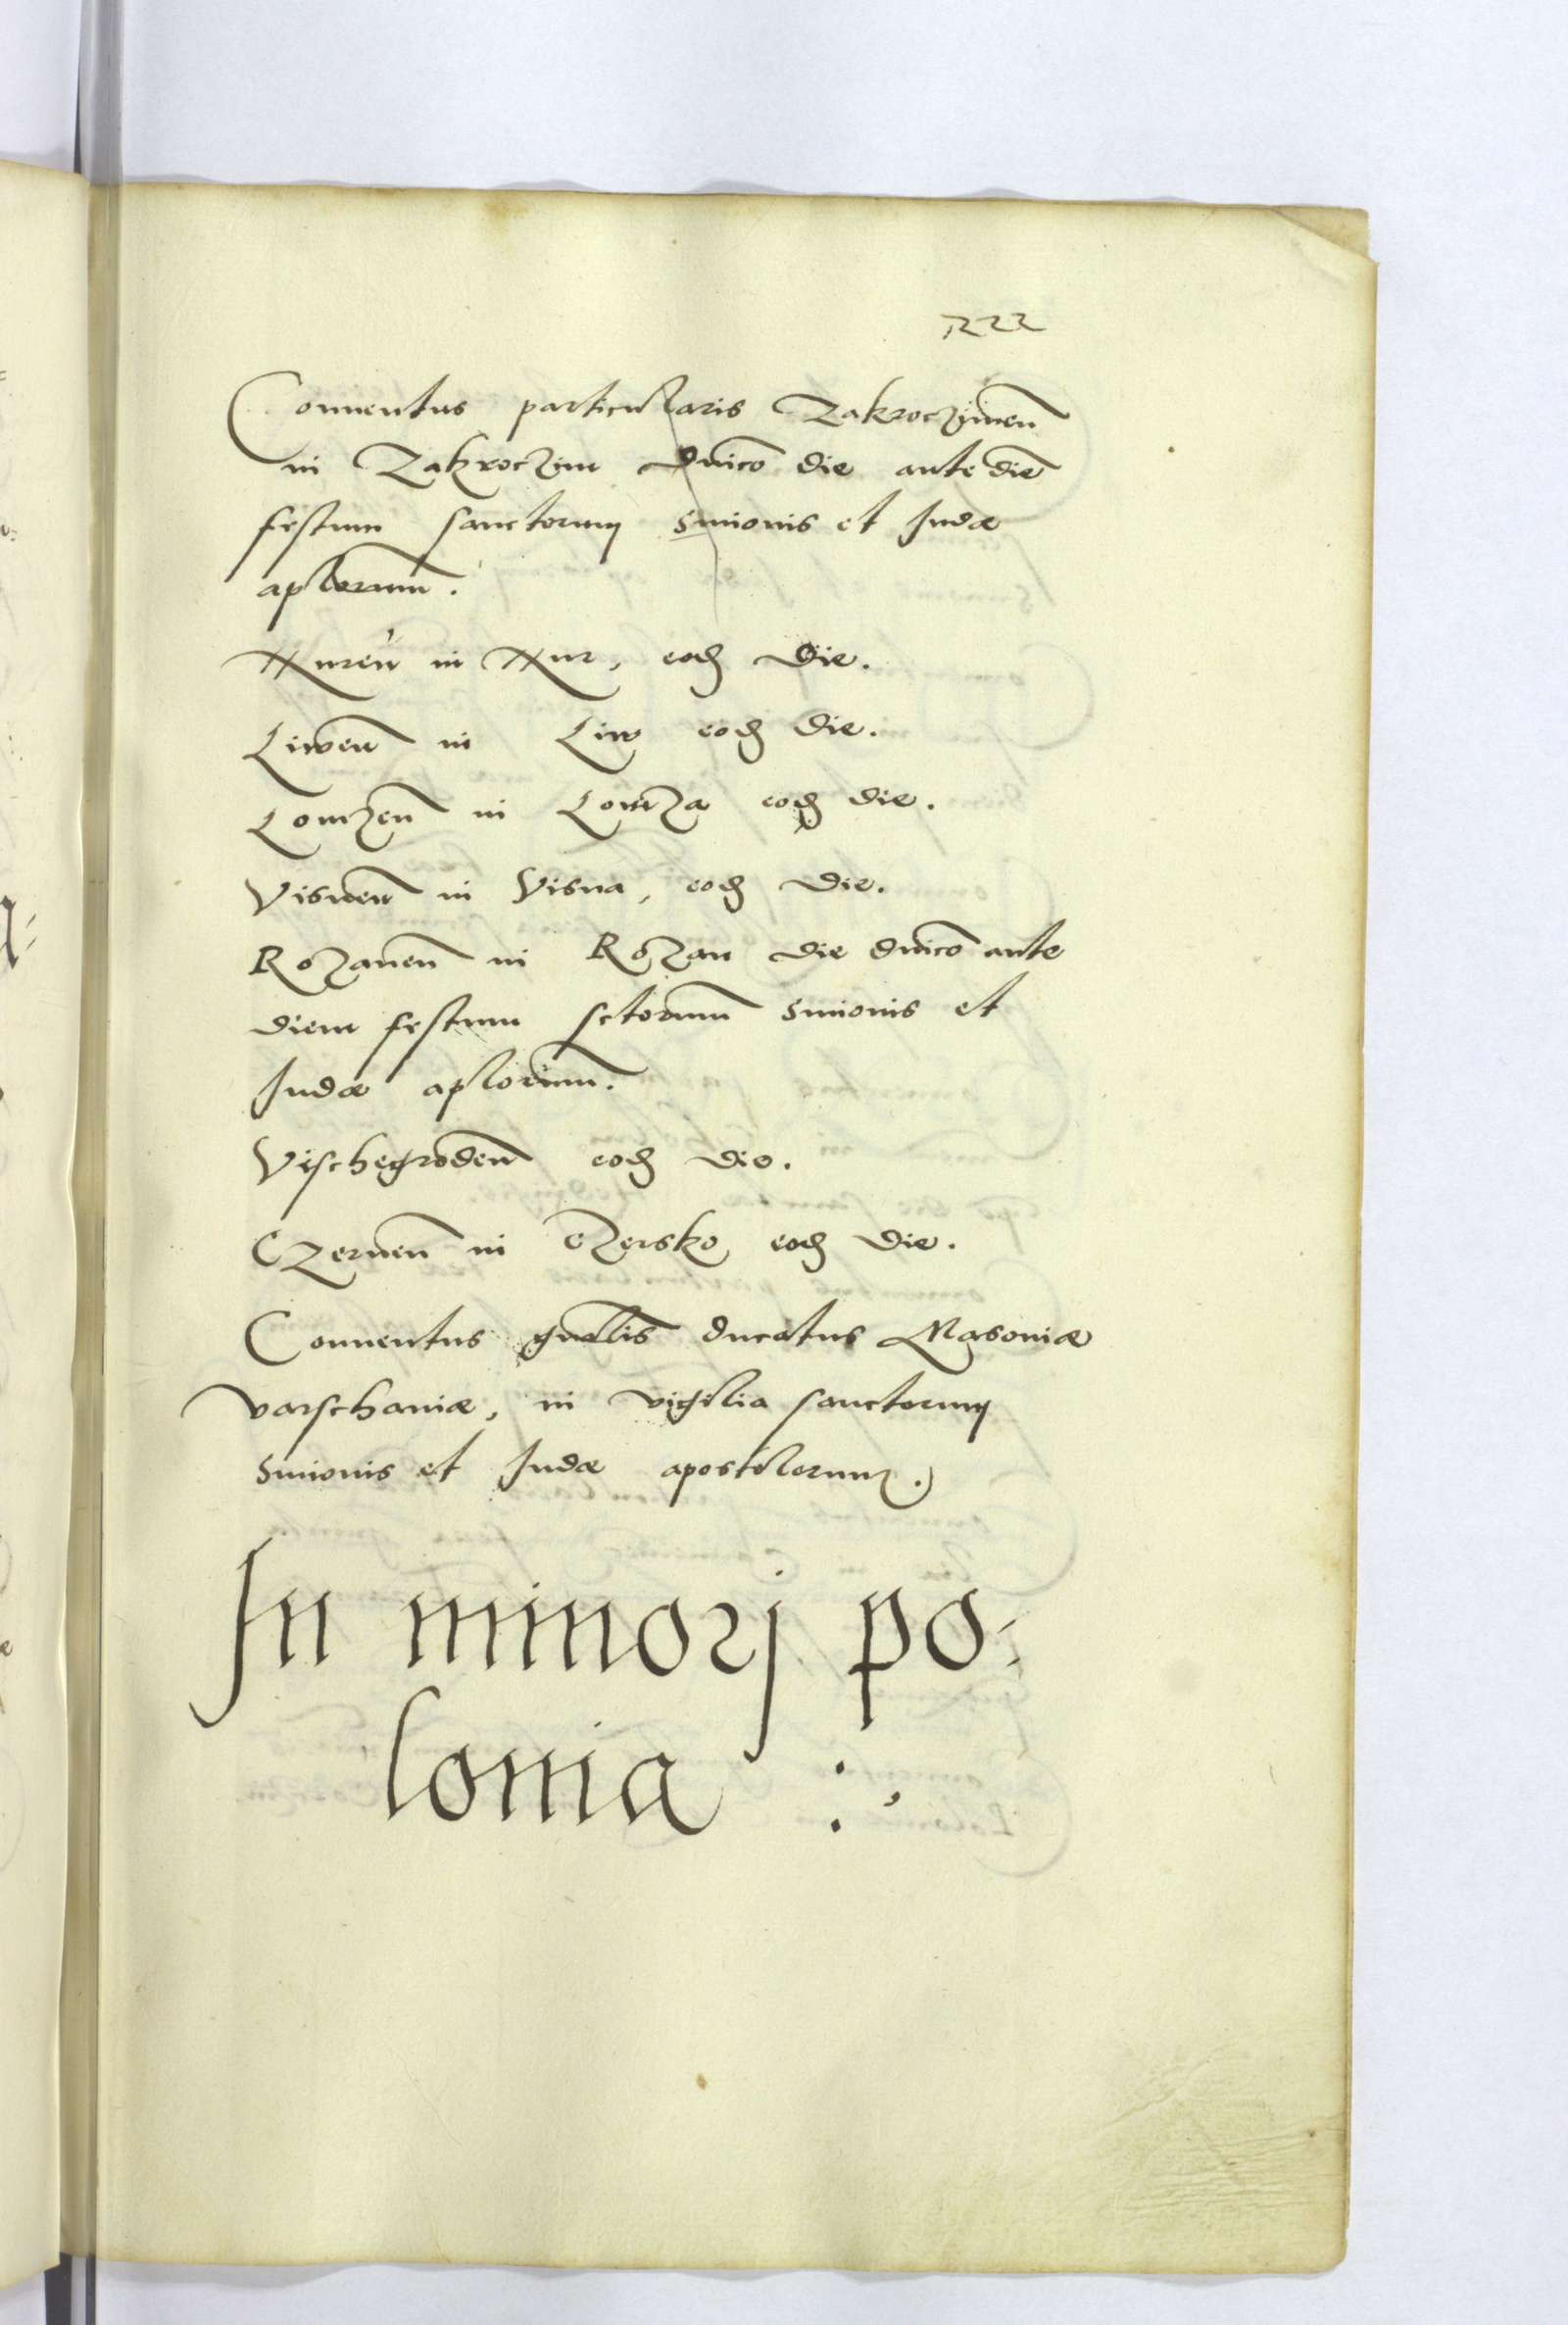 Conuentus particularis Zakroczimen̄
in Zakroczim dnico die ante diē
festum sanctorum Simonis et Iudæ
aplorum.
Nuren̄ in Nur, eod die.
Liwen̄ in Liw eod die.
Lomzen̄ in Lomza eod die.
Visnen̄ in Visna, eod die.
Rozanen̄ in Rozan die dnico ante
diem festum sctorum Simonis et
Iudæ aplorum.
Vischegroden̄ eod die.
Czernen̄ in Czersko eod die.
Conuentus gnalis ducatus Masouiæ
varschauiæ, in vigilia sanctorum
Simonis et Iudæ apostolorum.
In minorj po-
lonia :,